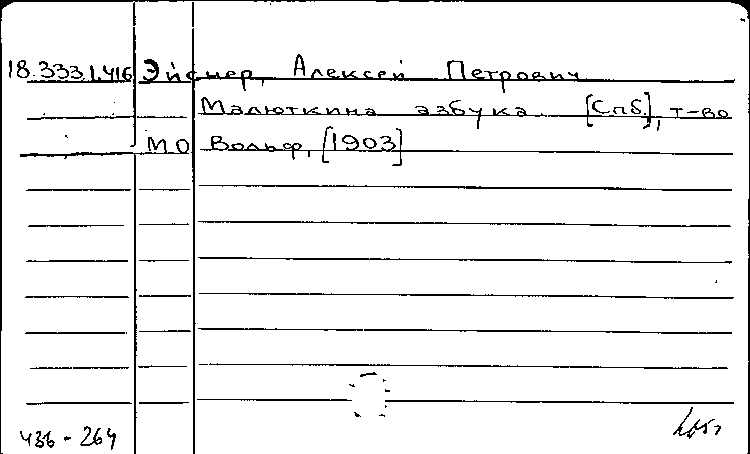 18.333.1.416 Эйснер, Алексей Петрович
Малюткина азбука [Спб], т-во
МО Вольф, [1903]
436-264